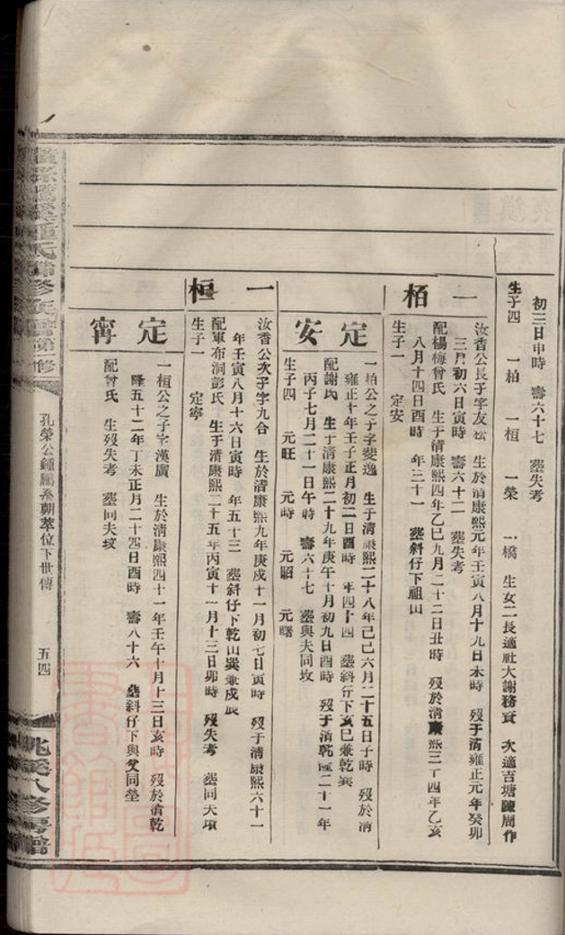 初三日申時 壽六十七 塟失考
生子四 一柏 一桓 一榮 一橋 生女二長適社大謝務賓 次適吉塘陳周作
一柏
汝香公長子字友松 生於清康熙元年壬寅八月十九日未時 歿于清雍正元年癸卯
三月初六日寅時 壽六十二 塟失考
配楊梅曾氏 生于清康熙四年乙巳九月二十二日丑時 歿於清康熙三十四年乙亥
八月十四日酉時 年三十一 塟斜仔下祖山
生子一 定安
定安
一柏公之子字斐逸 生于清康熙二十八年己巳六月二十五日子時 歿於清
雍正十年壬子正月初二日酉時 年四十四 塟斜仔下亥巳兼乾巽
配謝氏 生于清康熙二十九年庚午十月初九日酉時 歿于清乾隆二十一年
丙子七月二十一日午時 壽六十七 塟與夫同坟
生子四 元旺 元時 元昭 元曙
一桓
汝香公次子字九合 生於清康熙九年庚戌十一月初七日寅時 歿于清康熙六十一
年壬寅八月十六日寅時 年五十三 塟斜仔下乾山巽兼戌辰
配軍布洞彭氏 生于清康熙二十五年丙寅十一月十三日卯時 歿失考 塟同夫項
生子一 定寧
定寗
一桓公之子字漢廣 生於清康熙四十一年壬午十月十三日亥時 歿於清乾
隆五十二年丁未正月二十四日酉時 壽八十六 塟斜仔下與父同塋
配曾氏 生歿失考 塟同夫坟
孔榮公鍾鳳系朝萃位下世傳
五四